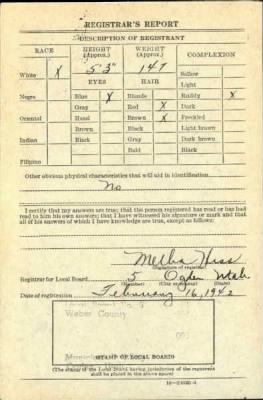 REGISTRAR'S REPORT
DESCRIPTION OF REGISTRANT
RACE HEIGHT (Approx.) WEIGHT (Approx.) COMPLEXION
White X 5 3" 147 Sallow
EYES HAIR Light
Negro Blue X Blonde Ruddy X
Gray Red X Dark
Oriental Hazel Brown Freckled
Brown Black Light brown
Indian Black Gray Dark brown
Bald Black
Filipino
Other obvious physical characteristics that will aid in identification
No
I certify that my answers are true; that the person registered has read or has had
read to him his own answers; that I have witnessed his signature or mark and that
all of his answers of which I have knowledge are true, except as follows:
Melba
(Signature of registrar)
Registrar for Local Board 5 Ogden Utah
(Number) (City or county) (State)
Date of registration February 16, 1942
Weber County
STAMP OF LOCAL BOARD
(The stamp of the Local Board having jurisdiction of the registrant
shall be placed in the above space)